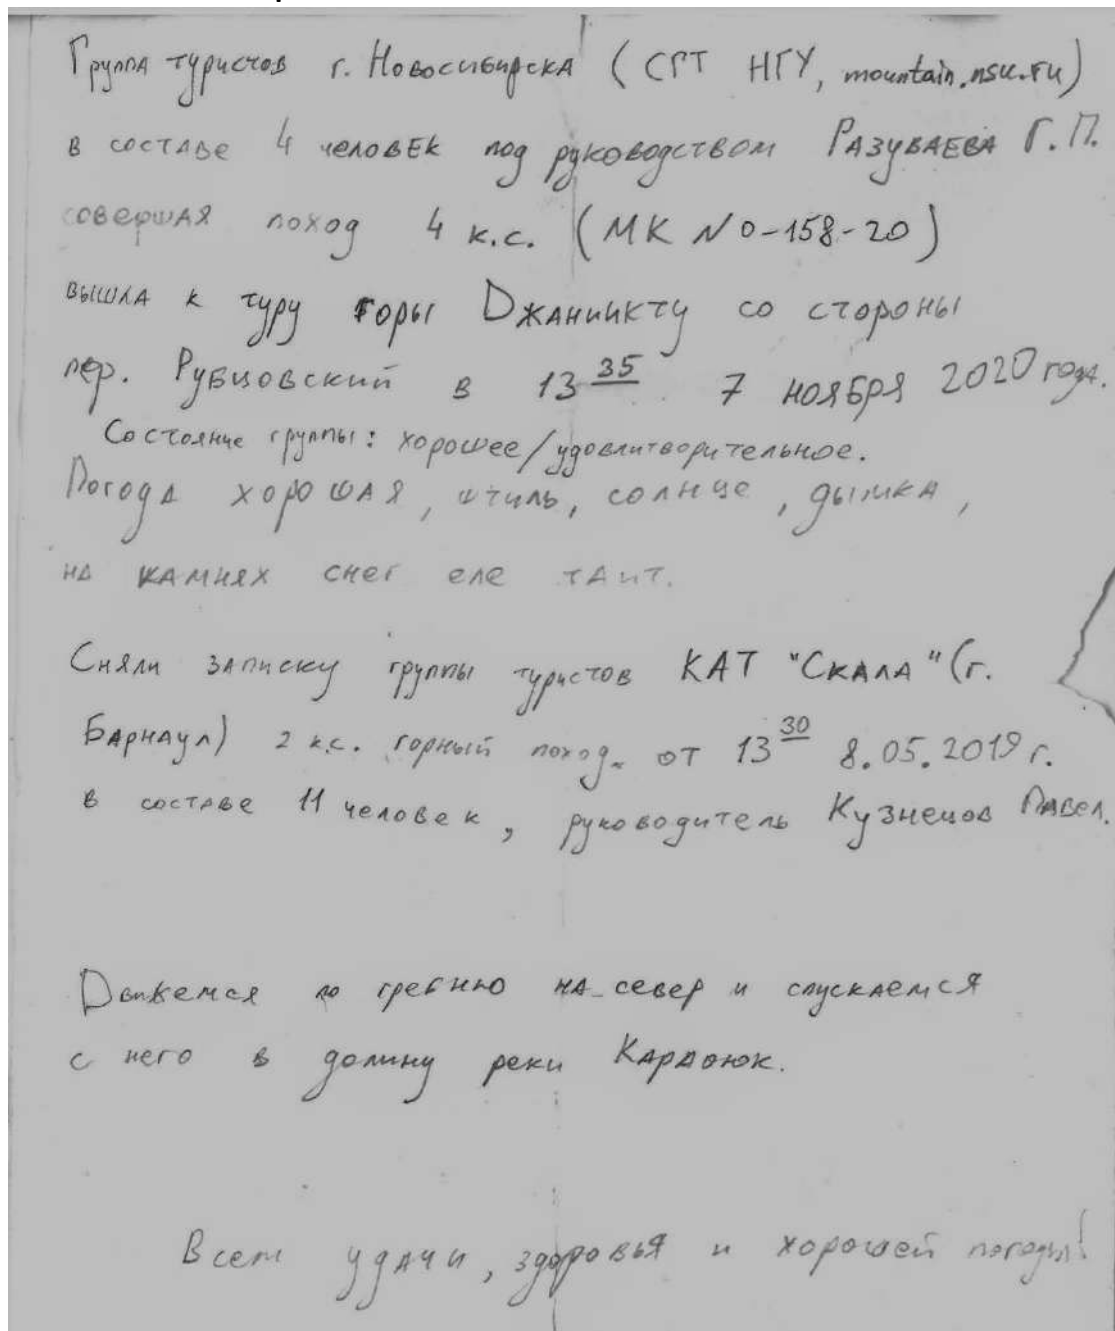 Группа туристов г. Новосибирска (СГТ НГУ, mountain.nsu.ru)
в составе 4 человек под руководством Разуваева Г.П.
совершая поход 4 к.с. (МК № 0-158-20)
вышла к туру горы Джаниикту со стороны
пер. Рубцовский в 13 35 7 ноября 2020 года.
Состояние группы: хорошее/удовлитворительное.
Погода хорошая, штиль, солнце, дымка,
на камнях снег еле таит.
Сняли записку группы туристов КАТ "Скала" (г.
Барнаул) 2 к.с. горный поход. от 13 30 8.05.2019 г.
в составе 11 человек, руководитель Кузнецов Павел.
Движемся по гребню на север и спускаемся
с него в долину реки
Всем удачи, здоровья и хорошей погоды!